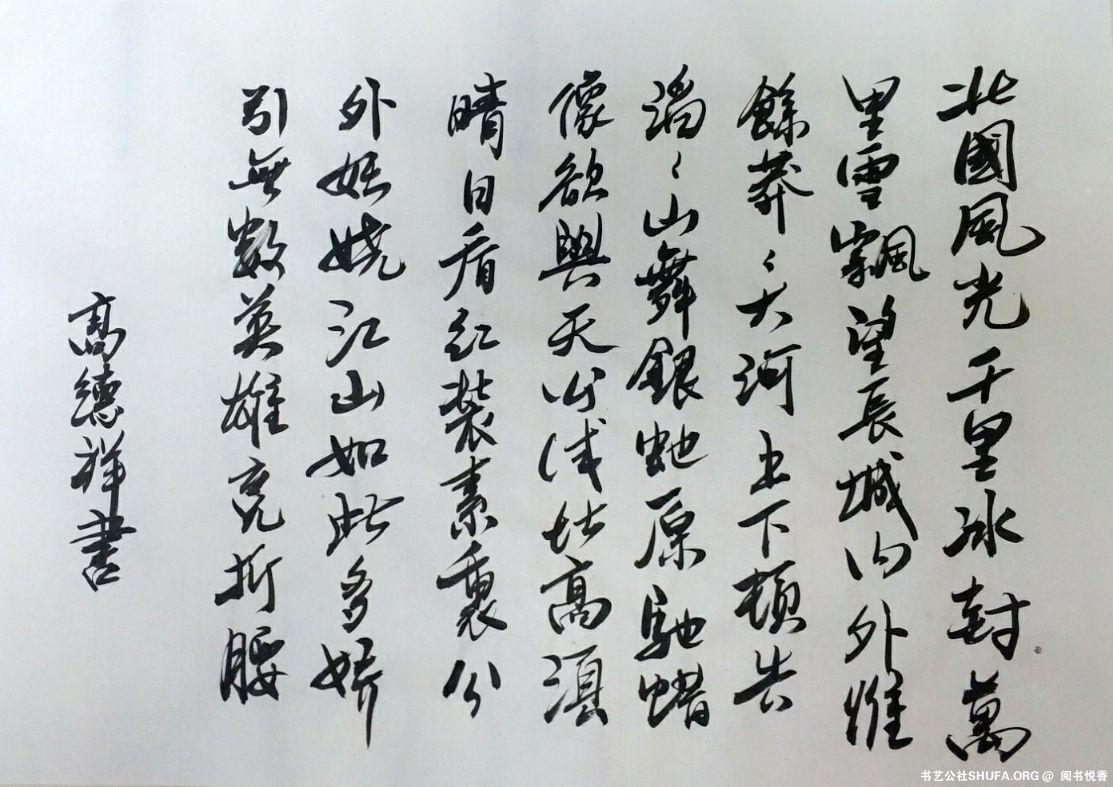 北國風光千里冰封萬
里雪飄望長城内外惟
餘莽〻大河上下頓失
滔〻山舞銀虵原馳蜡
像欲與天公試比高須
晴日看紅裝素裹分
外妖嬈江山如此多嬌
引無數英雄竞折腰
高德祥書
书艺公社SHUFA.ORG @ 阅书悦香